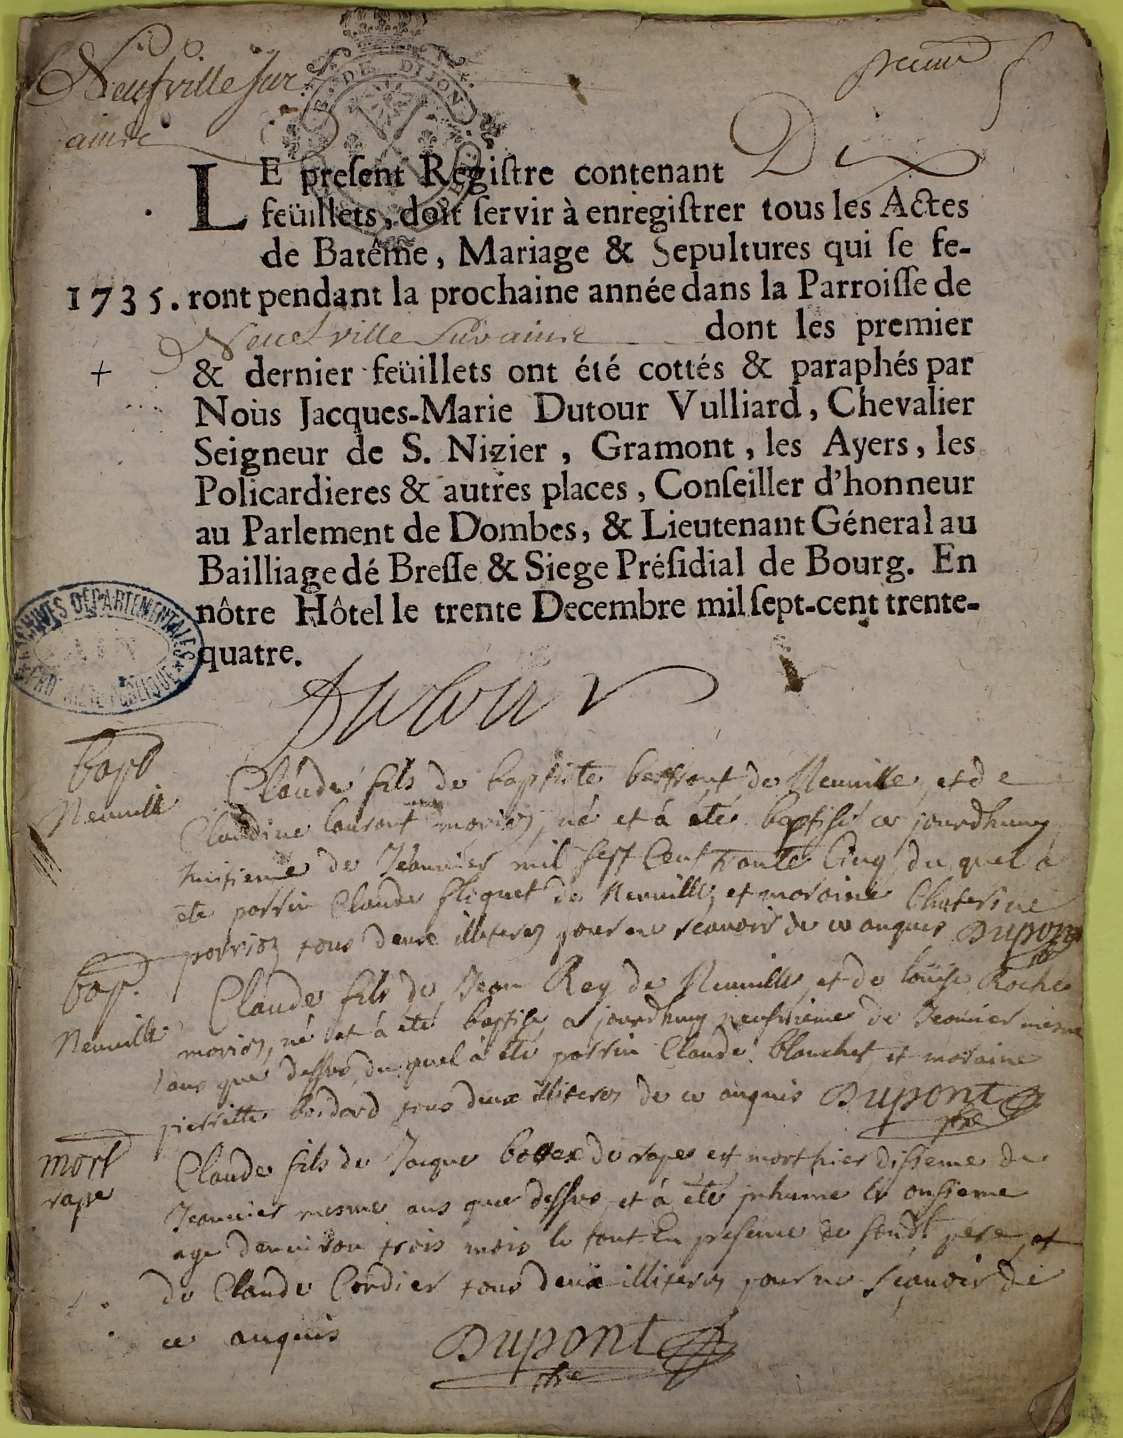 Neufville sur
premier
ainde
G. DE DIJON
LE present Registre contenant Dix
feüillets, doit servir à enregistrer tous les Actes
de Batême, Mariage & Sepultures qui se fe-
1735. ront pendant la prochaine année dans la Parroisse de
Neufville sur ainde dont les premier
& dernier feüillets ont été cottés & paraphés par
Nous Jacques-Marie Dutour Vulliard, Chevalier
Seigneur de S. Nizier, Gramont, les Ayers, les
Policardieres & autres places, Conseiller d'honneur
au Parlement de Dombes, & Lieutenant Géneral au
Bailliage dé Bresse & Siege Présidial de Bourg. En
nôtre Hôtel le trente Decembre mil sept-cent trente-
quatre.
ARCHIVES DÉPARTEMENTALES
PROPRIÉTÉ PUBLIQUE
Dutour
bapt
Neuville
Claude fils de baptiste de Neuville et de
Claudine laurent mariez, né et à été baptisé ce jourdhuy
huitieme de Jeanvier mil sept Cent trante Cinq du quel a
été parrin Claude fliquet de Neuville et maraine Chaterine
perrioz tous deux illiterez pour ne scauoir de ce anquis Dupont
ptre
bap.
Neuville
Claude fils de Jean Rey de Neuville et de loüise Roche
mariez, né et à été baptisé a jourdhuy neufvieme de Jeanvier mesme
ans que dessus, du quel à été parrin Claude blanchet et maraine
pierrette bordard tous deux illiterez de ce anquis Dupont
ptre
mort
rape
Claude fils de Jacque de rape est mort hier dissieme de
Jeanvier mesme ans que dessus et à été inhume le onsieme
age denviron trois mois le tout En presence de sondt pere et
de Claude Cordier tous deux illiterez pour ne scauoir de
ce anquis
Dupont
ptre